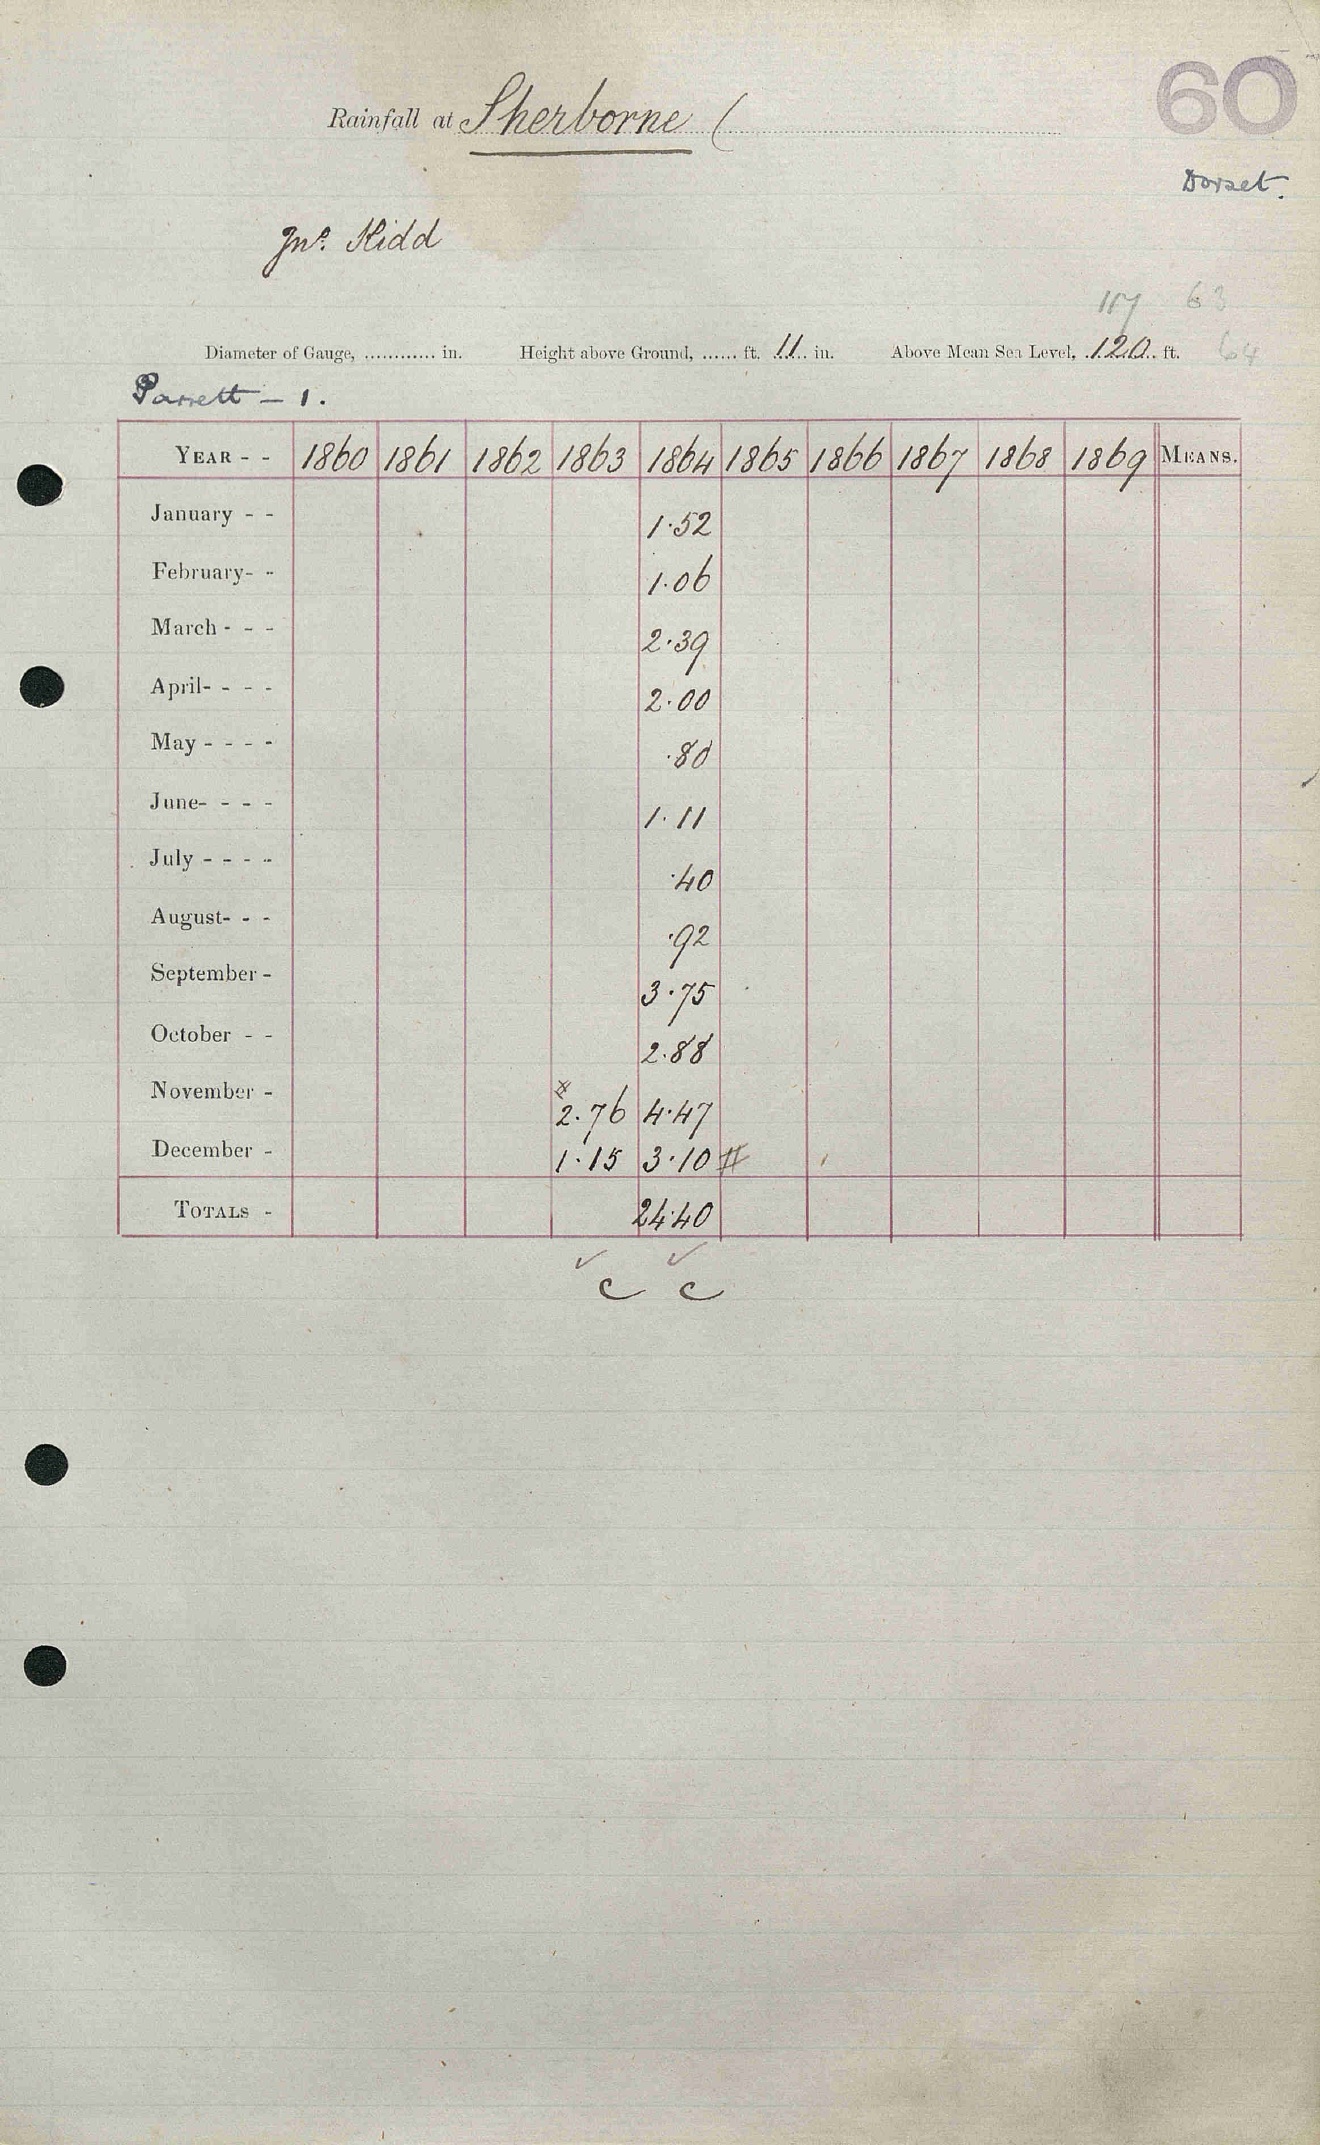 60
Rainfall at Sherborne (
Dorset.
Jno. Kidd
117 63
Diameter of Gauge, ............ in. Height above Ground, ...... ft. 11 in. Above Mean Sea Level, 120 ft. 64
Parrett - 1.
YEAR - - 1860 1861 1862 1863 1864 1865 1866 1867 1868 1869 MEANS.
January - - 1.52
February- - 1.06
March - - - 2.39
April- - - - 2.00
May - - - - .80
June- - - - 1.11
July - - - - .40
August- - - .92
September - 3.75
October - - 2.88
November - 2.76 4.47
December - 1.15 3.10 #
TOTALS - 24.40
✓ ✓
c c